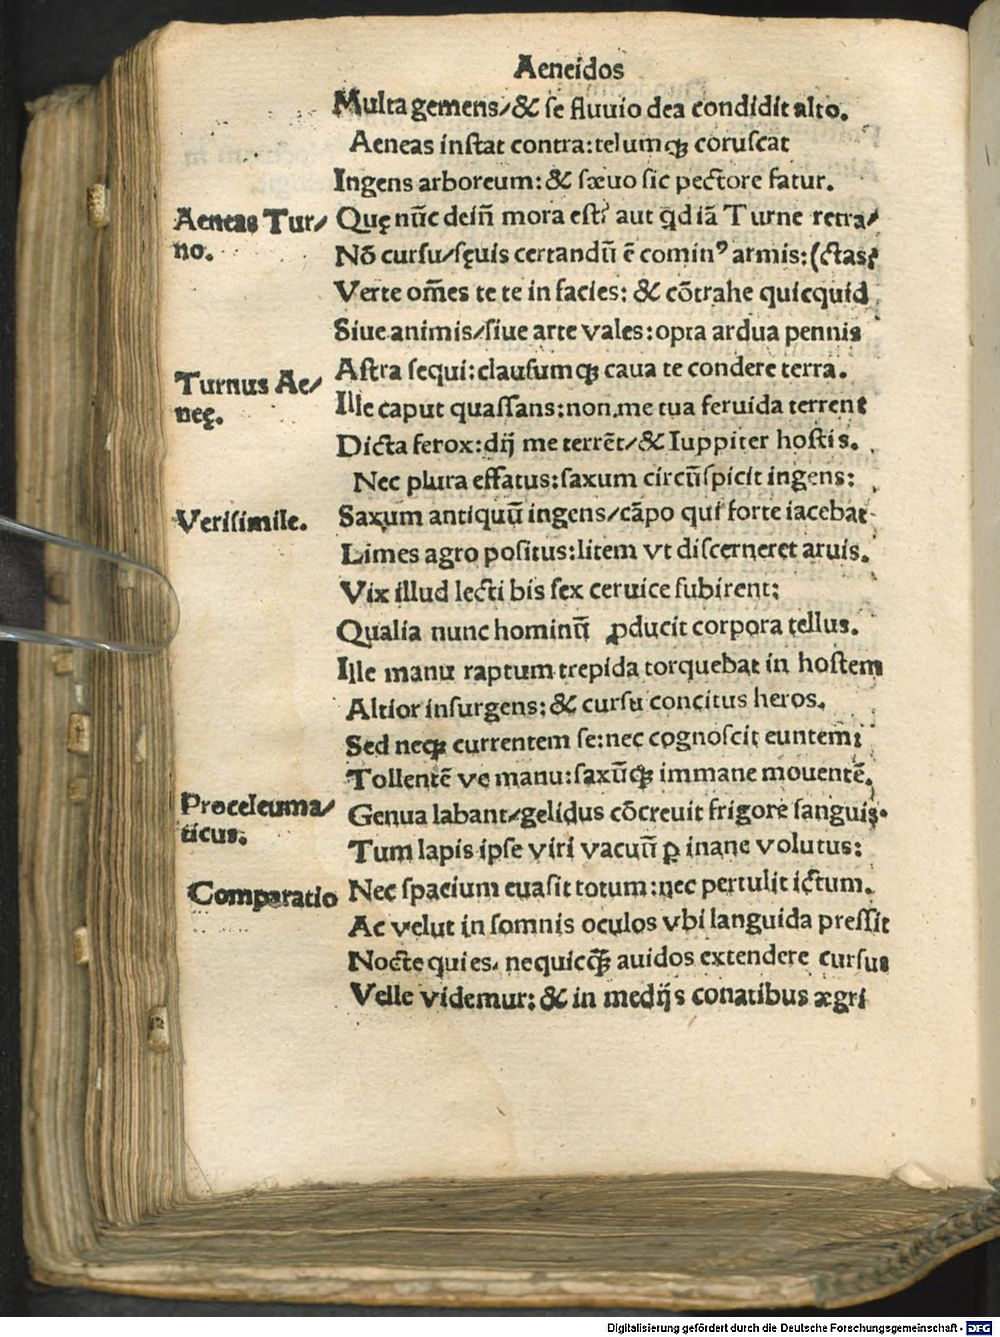 Aeneidos
Multa gemens/& se fluuio dea condidit alto.
Aeneas instat contra:telumqꝫ coruscat
Ingens arboreum:& sæuo sic pectore fatur.
Aeneas Tur/
no.
Quę nūc deiñ mora est? aut qd iā Turne retra/
Nō cursu/sęuis certandū ē comin⁹ armis:(ctas?
Verte om̃es te te in facies: & cōtrahe quicquid
Siue animis/siue arte vales:opta ardua pennis
Astra sequi:clausumqꝫ caua te condere terra.
Turnus Ae/
neę.
Ille caput quassans:non.me tua feruida terrent
Dicta ferox:dij me terrēt/& Iuppiter hostis.
Nec plura effatus:saxum circūspicit ingens:
Verisimile.
Saxum antiquū ingens/cāpo qui forte iacebat
Limes agro positus:litem vt discerneret aruis.
Vix illud lecti bis sex ceruice subirent:
Qualia nunc hominū ꝓducit corpora tellus.
Ille manu raptum trepida torquebat in hostem
Altior insurgens:& cursu concitus heros.
Sed neqꝫ currentem se:nec cognoscit euntem:
Tollentē ve manu:saxūqꝫ immane mouentē.
Proceleuma/
ticus.
Genua labant/gelidus cōcreuit frigore sanguis.
Tum lapis ipse viri vacuū ꝑ inane volutus:
Comparatio
Nec spacium euasit totum:nec pertulit ictum.
Ac velut in somnis oculos vbi languida pressit
Nocte quies. nequicqꝫ̄ auidos extendere cursus
Velle videmur:& in medijs conatibus ægri
Digitalisierung gefördert durch die Deutsche Forschungsgemeinschaft - DFG